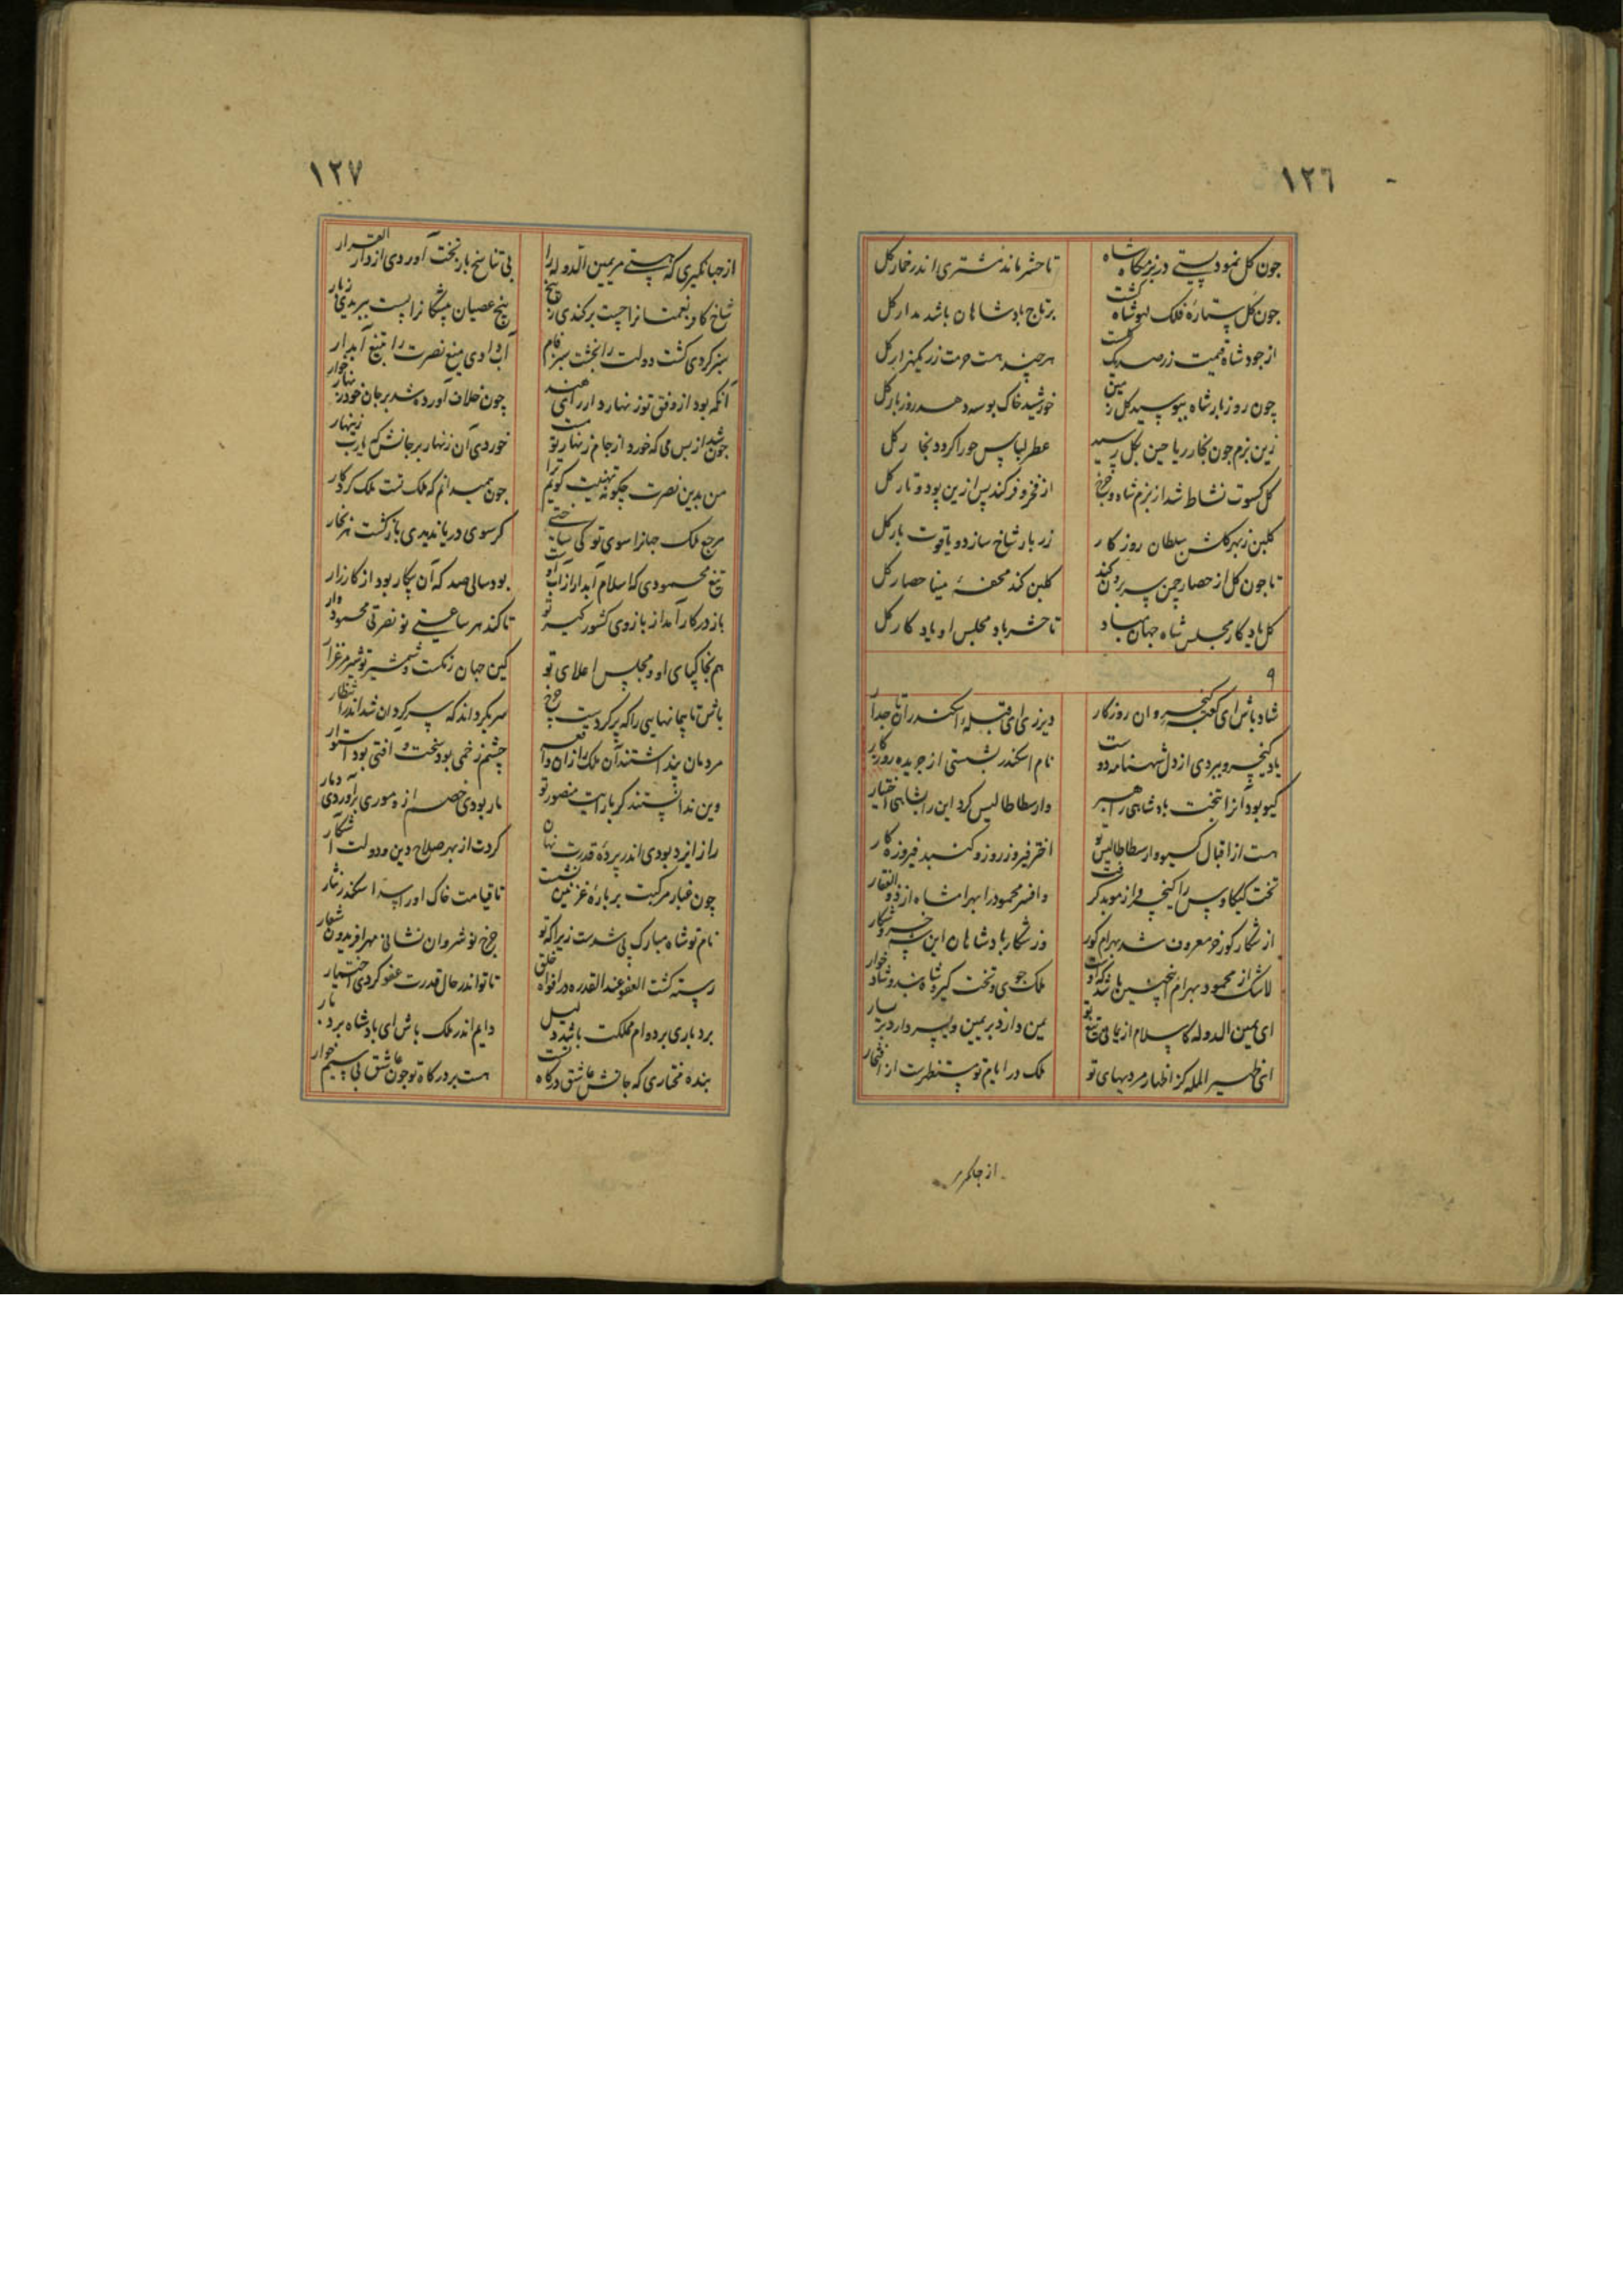 ١٢٦
چون گل نمود پستی در بزمگاه شاه تا حشر ماند مشتری اندر خمار گل
چون گل ستارهٔ فلک لهو شاه گشت بر تاج پادشاهان باشد مدار گل
از جود شاه قیمت زر صد یک گشت هر چند هست حرمت زر یکهزار گل
چون روز بار شاه ببوسید گل زمین خورشید خاک بوسه دهد روز بار گل
زین بزم چون بخار ریاحین بگل رسید عطر لباس حورا گردد بخار گل
گل کسوت نشاط شد از بزم شاه و چرخ از فخر و فر کند پس ازین پود و تار گل
گلبن ز بهر گلشن سلطان روزگار زر بار شاخ سازد و یاقوت بار گل
تا چون گل از حصار چمن سر برون کند گلبن کند محفهٔ مینا حصار گل
گل یادگار مجلس شاه جهان مباد تا حشر باد مجلس او یادگار گل
٩
شاد باش ای کعبهٔ کیخسروان روزگار دیر زی ای قبلهٔ اسکندران تاجدار
یاد کیخسرو ببردی از دل شهنامه دوست نام اسکندر بشستی از جریده روزگار
گیو بود آنرا بتخت پادشاهی راهبر وارسطاطالیس کرد این را بشاهی اختیار
هست از اقبال گیو و ارسطاطالیس تو اختر فیروز روز و گنبد فیروزه کار
تخت کیکاوس را کیخسرو از موبد گرفت وافسر محمود را بهرامشاه از ذوالفقار
از شکار گور خر معروف شد بهرام گور وز شکار پادشاهان این خسرو شکار
لاشک از محمود بهرام اینچنین باشد که اوست ملک جوی و تخت گیر و شاه بند و شاد خوار
ای یمین الدوله کاسلام از یمانی تیغ تو یمن دارد بر یمین و یسر دارد بر یسار
ای ظهیر المله کز اظهار مردیهای تو ملک در ایام تو مستظهرست از افتخار
از جهانگیری
١٢٧
از جهانگیری که هستی مر یمین الدوله را بی تناسخ باز تخت آوردی از دار القرار
شاخ کافر نعمتانرا چست برکندی ز بیخ بیخ عصیان پیشگانرا پست ببریدی ز بار
سبز کردی کشت دولت را بخشت سبز فام آب دادی تیغ نصرت را بتیغ آبدار
آنکه بود از وفق تو زنهار دار رای هند چون خلاف آورد شد بر جان خود زنهار خوار
چون شد از بس می که خورد از جام زنهار تو مست خوردی آن زنهار بر جانش که یارب زینهار
من بدین نصرت چگونه تهنیت گویم ترا چون همیدانم که ملک تست ملک کردگار
مرجع ملک جهانرا سوی تو کی ساختی گر سوی دریا ندیدی بازگشت هر بخار
تیغ محمودی که اسلام آبدار از آب اوست بود سالی صد که آن بیکار بود از کارزار
باز در کار آمد از بازوی کشور گیر تو تا کند هر ساعتی نو نصرتی محمود وار
هم بخاکپای او و مجلس اعلای تو کین جهان زنگست و شمشیر تو شیر مرغزار
باش تا پیمانهایی را که پر کردست چرخ سر بگرداند که سر گردان شد اندر انتظار
مردمان پنداشتند آن ملک را زان واقعه چشم زخمی بود سخت و آفتی بود استوار
وین ندانستند کز رایت منصور تو مار بودی خصم از موری برآوردی دمار
راز ایزد بودی اندر پردهٔ قدرت نهان کردت از بهر صلاح دین و دولت آشکار
چون غبار مرکبت بر بارهٔ غزنین نشست تا قیامت خاک او را سد اسکندر نثار
نام تو شاه مبارک پی شدست زیرا که تو چرخ نوشروان نشانی مهر افریدون شعار
رسته گشت العفو عند القدره در افواه خلق تا تو اندر حال قدرت عفو کردی اختیار
بردباری بر دوام مملکت باشد دلیل دایم اندر ملک باش ای پادشاه بردبار
بنده مختاری که جانش عاشق درگاه تست هست بر درگاه تو چون عاشق بی سیم خوار